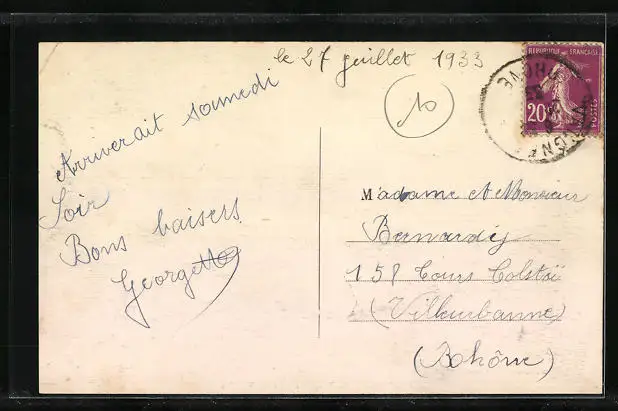 le 27 juillet 1933
10
RÉPUBLIQUE FRANÇAISE
20c
POSTES
Arriverait samedi
Soir
Bons baisers
Georgette
Madame et Monsieur
Bernardy
158 Cours Tolstoï
(Villeurbanne)
(Rhône)